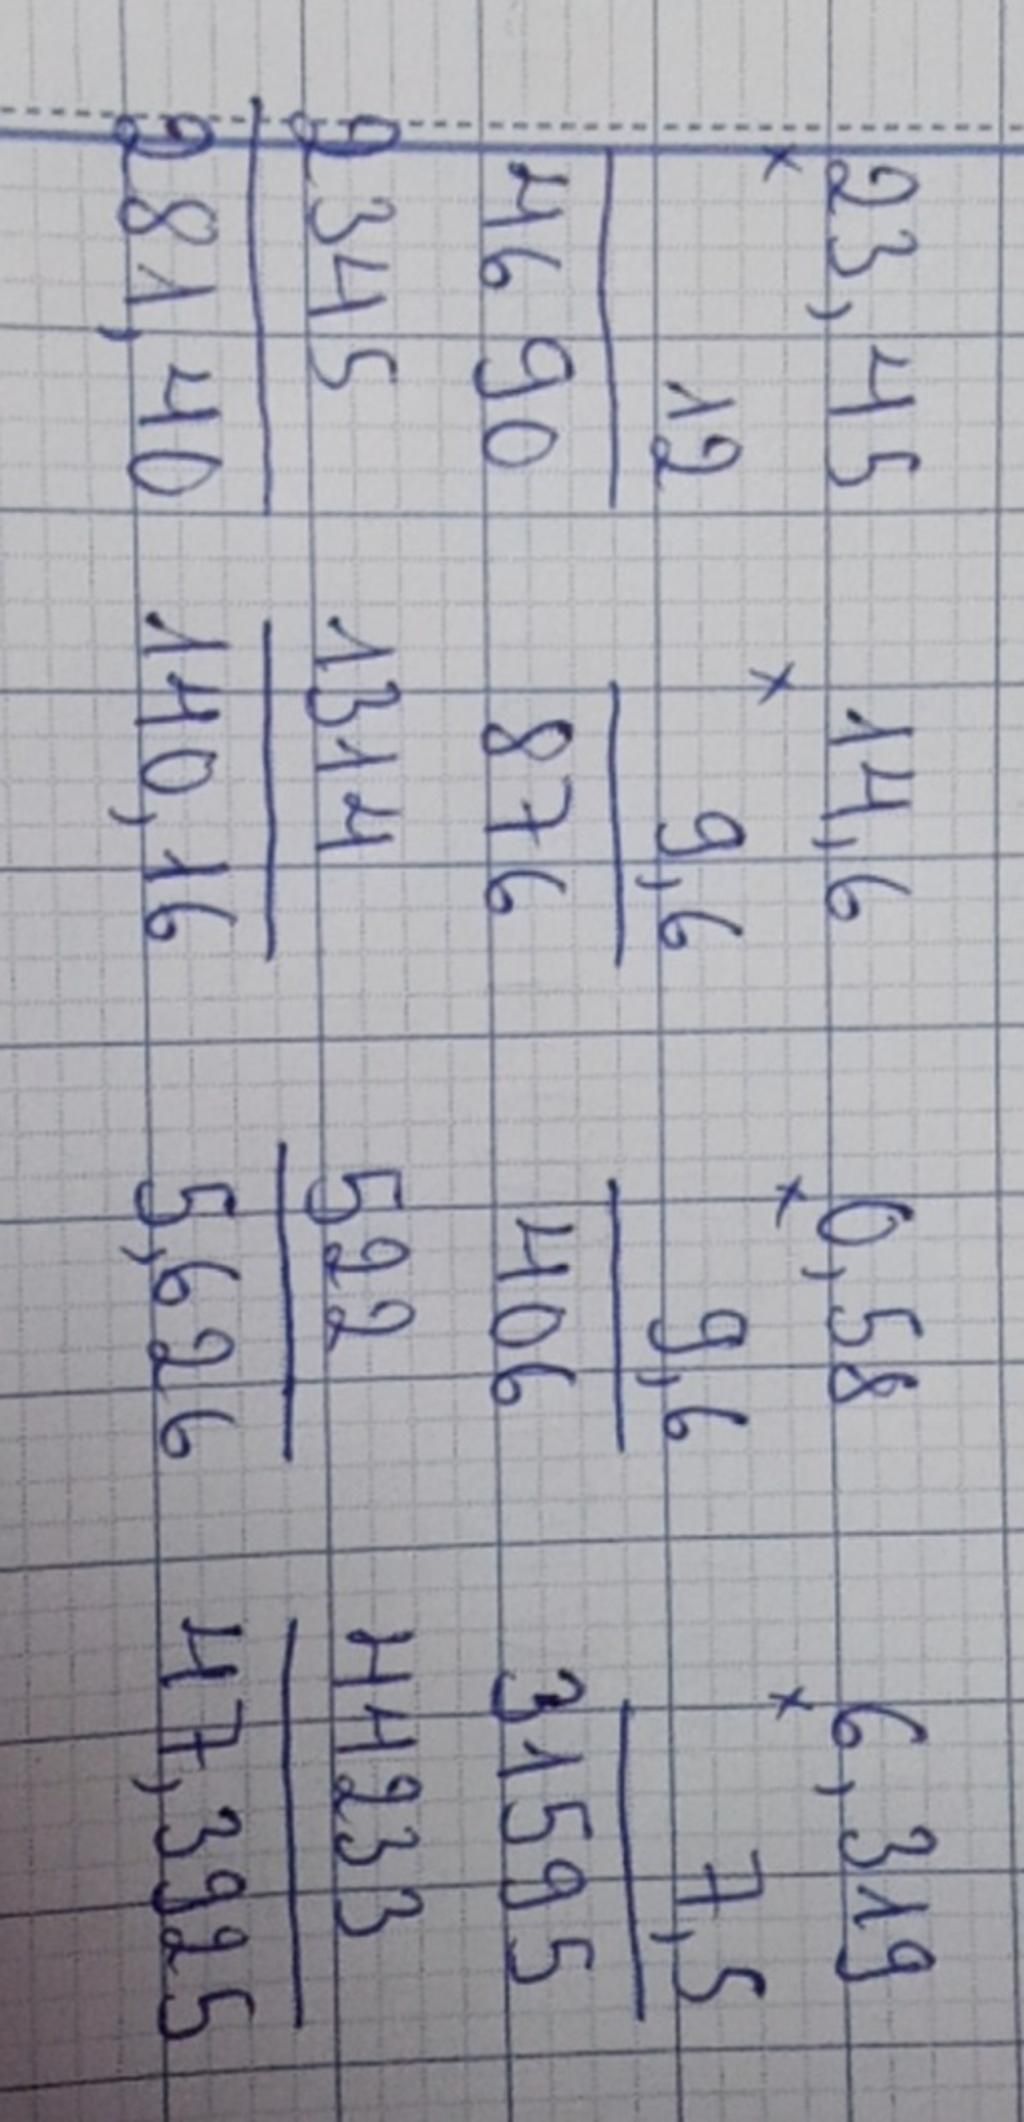 23,45 14,6 0,58 6,319
× 12 × 9,6 × 9,6 × 7,5
46 90 876 406 31595
2345 1314 522 44233
281,40 140,16 5,626 47,3925